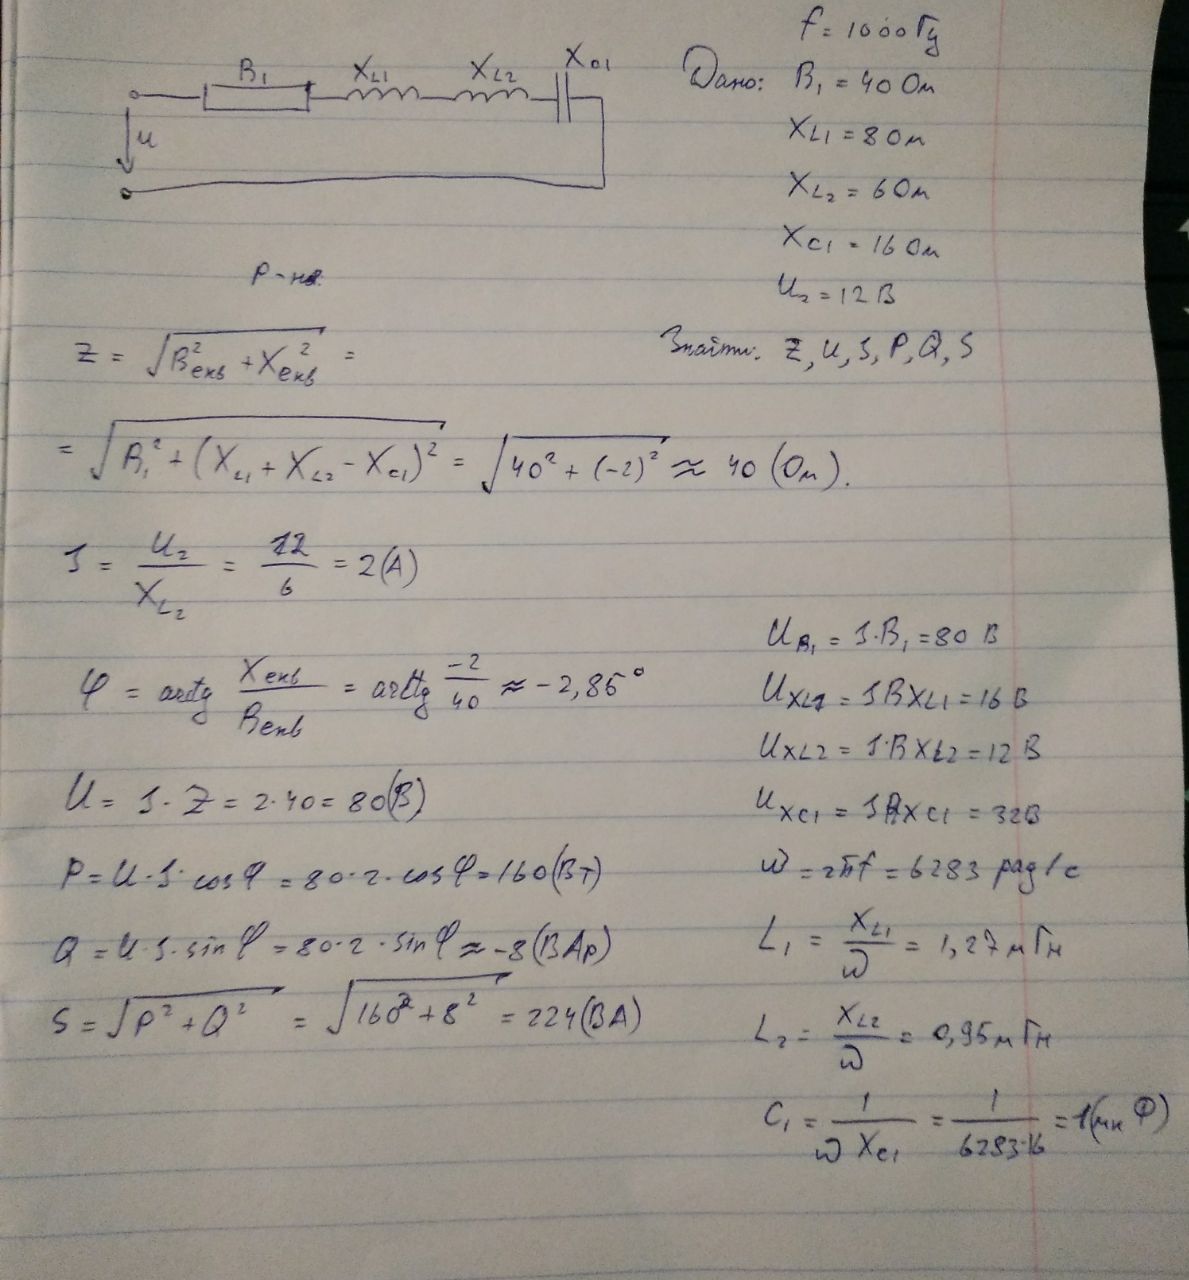 f = 1000 Гц
B₁ XL1 XL2 XC1
Дано: B₁ = 40 Ом
u
XL1 = 8 Ом
XL₂ = 6 Ом
XC1 = 16 Ом
U₂ = 12 В
Р-ня
Знайти: Z, U, I, P, Q, S
Z = √(Bекв² + Xекв²) =
= √(B₁² + (XL1 + XL2 - XC1)²) = √(40² + (-2)²) ≈ 40 (Ом).
I = U₂/XL₂ = 12/6 = 2(А)
φ = arctg Xекв/Bекв = arctg -2/40 ≈ -2,86°
U = I · Z = 2·40 = 80(В)
P = U·I·cosφ = 80·2·cosφ = 160(Вт)
Q = U·I·sinφ = 80·2·sinφ ≈ -8(ВАр)
S = √(P² + Q²) = √(160² + 8²) = 224(ВА)
UB₁ = I·B₁ = 80 В
UXL1 = IBXL1 = 16 В
UXL2 = I·BXL2 = 12 В
UXC1 = IBXC1 = 32В
ω = 2πf = 6283 рад/с
L₁ = XL1/ω = 1,27 мГн
L₂ = XL2/ω = 0,95 мГн
C₁ = 1/ω XC1 = 1/6283·16 = 1(мкФ)